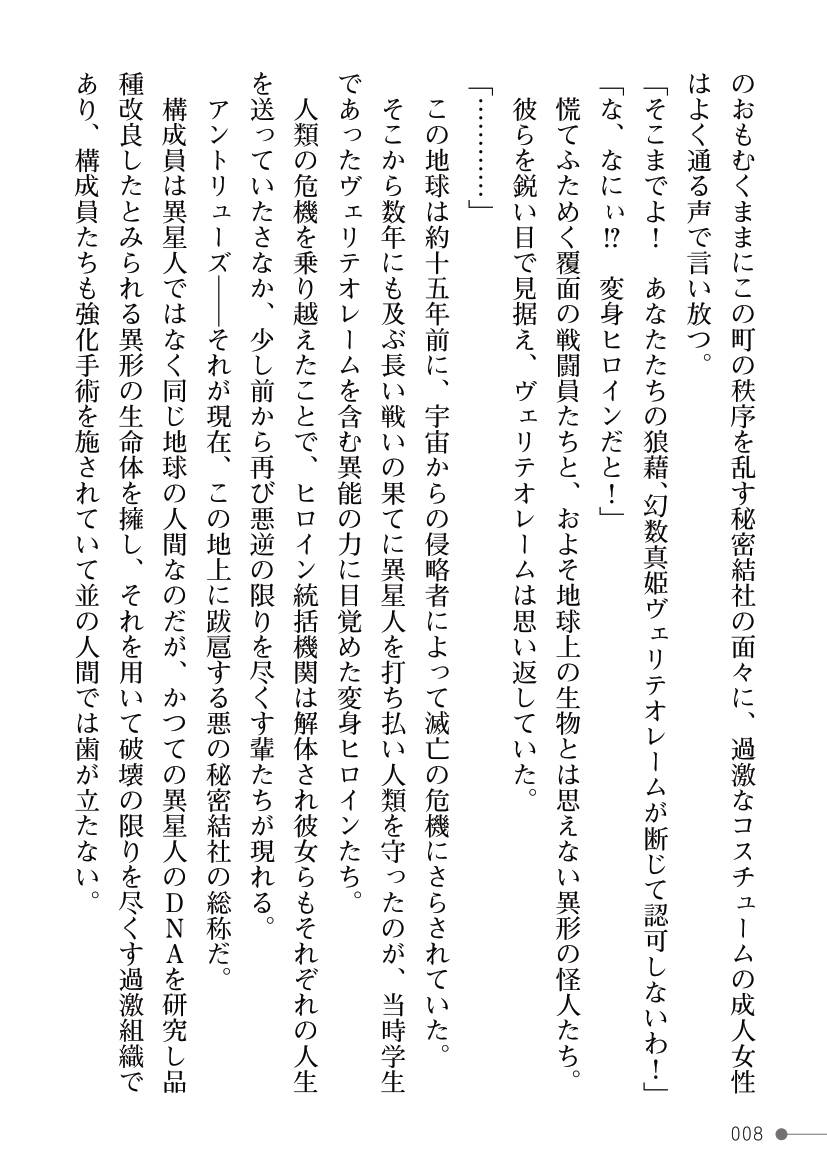 のおもむくままにこの町の秩序を乱す秘密結社の面々に、過激なコスチュームの成人女性
はよく通る声で言い放つ。
「そこまでよ！　あなたたちの狼藉、幻数真姫ヴェリテオレームが断じて認可しないわ！」
「な、なにぃ!?　変身ヒロインだと！」
慌てふためく覆面の戦闘員たちと、およそ地球上の生物とは思えない異形の怪人たち。
彼らを鋭い目で見据え、ヴェリテオレームは思い返していた。
「…………」
この地球は約十五年前に、宇宙からの侵略者によって滅亡の危機にさらされていた。
そこから数年にも及ぶ長い戦いの果てに異星人を打ち払い人類を守ったのが、当時学生
であったヴェリテオレームを含む異能の力に目覚めた変身ヒロインたち。
人類の危機を乗り越えたことで、ヒロイン統括機関は解体され彼女らもそれぞれの人生
を送っていたさなか、少し前から再び悪逆の限りを尽くす輩たちが現れる。
アントリューズ――それが現在、この地上に跋扈する悪の秘密結社の総称だ。
構成員は異星人ではなく同じ地球の人間なのだが、かつての異星人のＤＮＡを研究し品
種改良したとみられる異形の生命体を擁し、それを用いて破壊の限りを尽くす過激組織で
あり、構成員たちも強化手術を施されていて並の人間では歯が立たない。
008